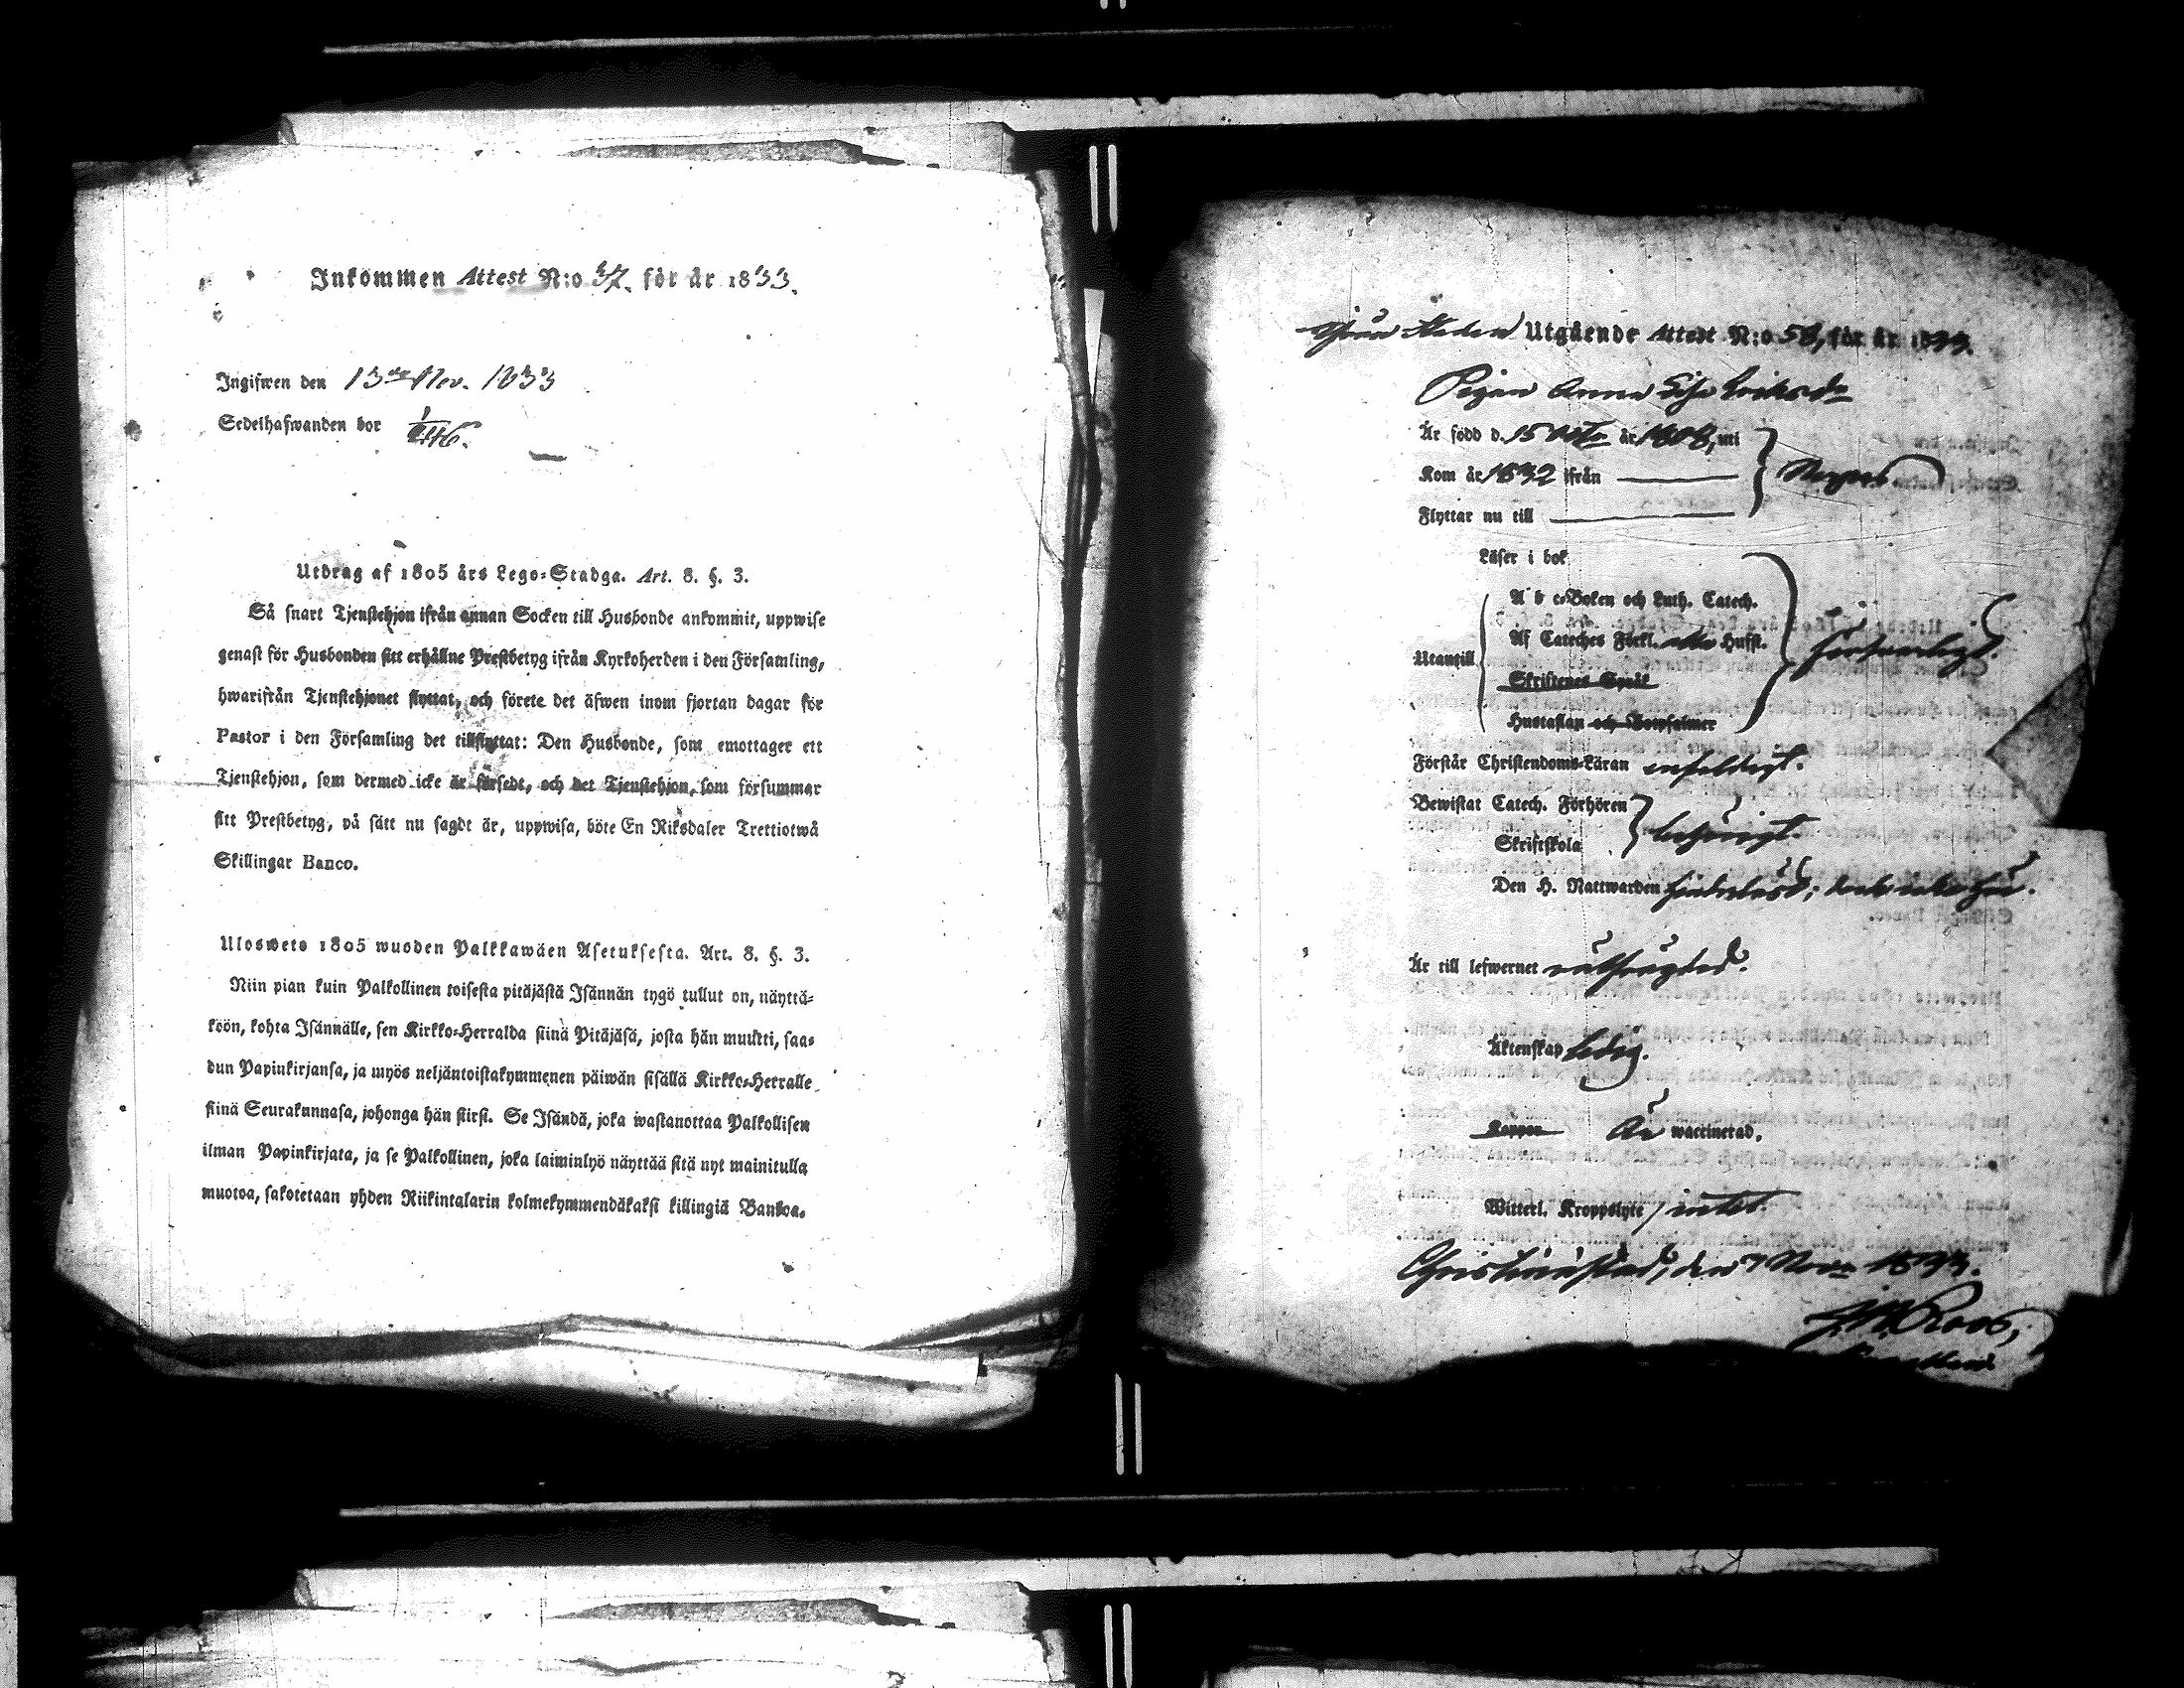 Inkommen Attest N:o 37. för år 1833.
Ingifwen den 13de Nov. 1833
Sedelhafwanden bor
Utdrag af 1805 års Lego-Stadga. Art. 8. §. 3.
Så snart Tjenstehjon ifrån annan Socken till Husbonde ankommit, uppwise
genast för Husbonden sitt erhållne Prestbetyg ifrån Kyrkoherden i den Församling,
hwarifrån Tjenstehjonet flyttat, och förete det äfwen inom fjortan dagar för
Pastor i den Församling det tillflyttat: Den Husbonde, som emottager ett
Tjenstehjon, som dermed icke är försedt, och det Tjenstehjon, som försummar
sitt Prestbetyg, på sätt nu sagdt är, uppwisa, böte En Riksdaler Trettiotwå
Skillingar Banco.
Uloswеto 1805 wuoden Palkkawäen Asetuksesta. Art. 8. §. 3.
Niin pian kuin Palkollinen toisesta pitäjästä Isännän tygö tullut on, näyttä-
köön, kohta Isännälle, sen Kirkko-Herralda siinä Pitäjäsä, josta hän muutti, saa-
dun Papinkirjansa, ja myös neljäntoistakymmenen päiwän sisällä Kirkko-Herralle
siinä Seurakunnasa, johonga hän siirsi. Se Isändä, joka wastanottaa Palkollisen
ilman Papinkirjata, ja se Palkollinen, joka laiminlyö näyttää sitä nyt mainitulla
muotoa, sakotetaan yhden Riikintalarin kolmekymmendäkaksi killingiä Bankoa.
Utgående Attest N:o 58, för år 1833.
Pigan Anna Lisa Eriksdr
Är född d. 15 Octo. år 1808, uti
Kom år 1832 ifrån
Flyttar nu till
Läser i bok
A b c-Boken och Luth. Catech.
Af Cateches Förkl. alla Hufst.
Utantill
Skriftenes Språk
Hustaflan och Botpsalmer
försvarligt.
Förstår Christendoms-Läran enfaldigt.
Bewistat Catech. Förhören
Skriftskola
behörigt.
Den H. Nattwarden hinderlöst; dock icke här.
Är till lefwernet
Äktenskap ledig.
Koppor Är waccinerad.
Witterl. Kroppslyte / intet.
Christinæstad, den 7 Nov. 1833.
Roos,